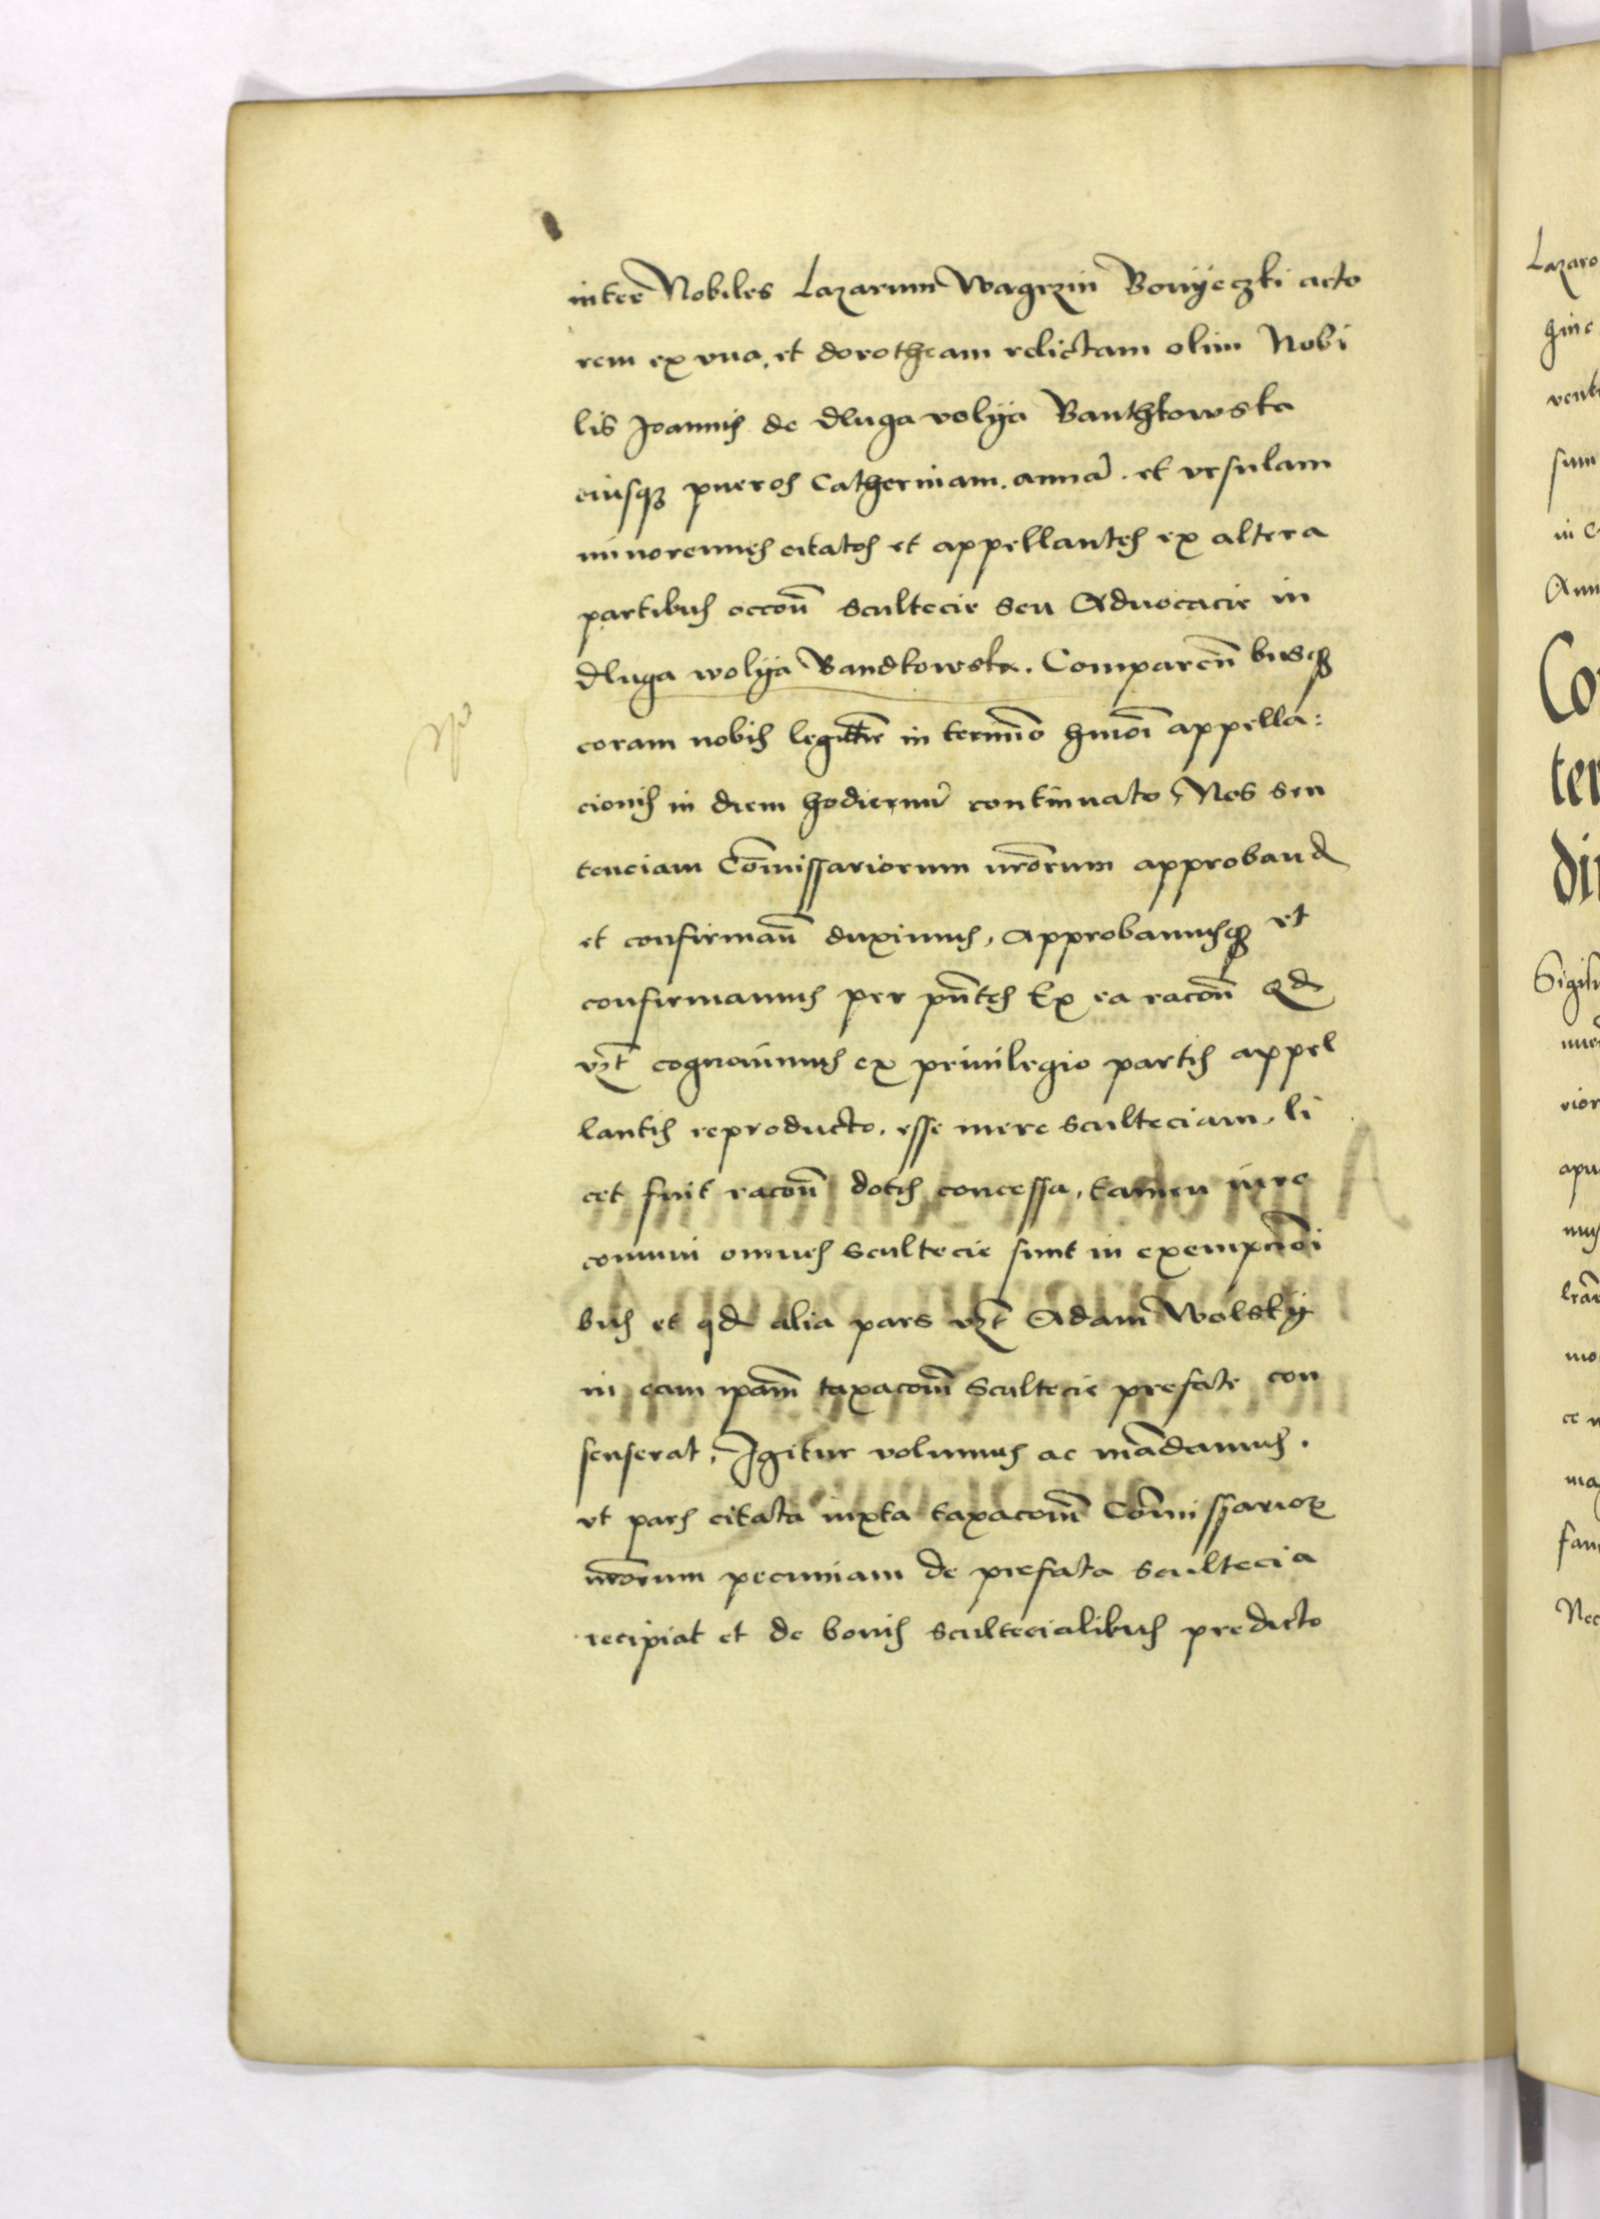 inter Nobiles Lazarum Wagrzin Bonyeczki acto
rem ex vna, et dorotheam relictam olim Nobi
lis Joannis de dluga volya Banthkowska
eiusq3 pueros Catherinam. annā. et vrsulam
minorennes citatos et appellantes ex altera
partibus occoñ scultecie seu Aduocacie in
dluga wolya Bandkowska. Comparen̄ busq3
coram nobis legittīe in termīo hmōi appella:
cionis in diem hodiernū continuato, Nos sen
tenciam Com̄issariorum nr̄orum approband
et confirmañ duximus, approbamusq3 et
confirmamus per pn̄tes Ex ea racoñ Qd
vz̄t cognouimus ex priuilegio partis appel
lantis reproducto. esse mere sculteciam, li
cet fuit racoñ dotis concessa, tamen iure
comuni omnes scultecie sunt in exempcīoi
bus et qd alia pars vz̄t Adam Wolsky
in eam ip̄am taxacom̄ Scultecie prefate con
senserat, Igitur volumus ac mādamus.
vt pars citata iuxta taxacom̄ Com̄issarior
nr̄orum pecuniam de prefata scultecia
recipiat et de bonis scultecialibus predicto
Lazaro
sum
in
Ann
Co
ter
di
Sigil
rior
apu
mo
ma
fam
Nec